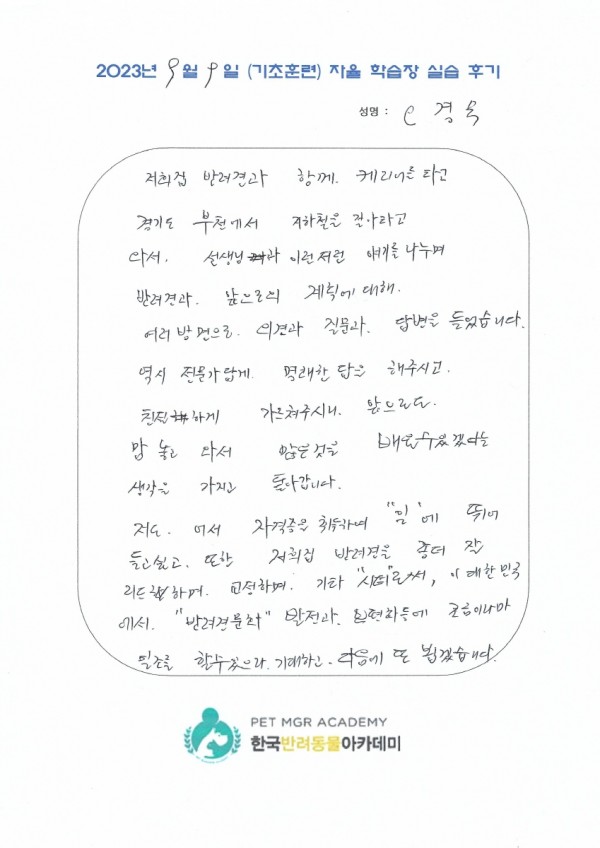 2023년 9월 9일 (기초훈련) 자율 학습장 실습 후기
성명 : 이경옥
저희집 반려견과 함께. 케리어를 타고
경기도 부천에서 지하철을 갈아타고
와서. 선생님과 이런저런 얘기를 나누며
반려견과. 앞으로의 계획에 대해.
여러 방면으로. 의견과 질문과. 답변을 들었습니다.
역시 전문가답게. 명쾌한 답을 해주시고.
친절하게 가르쳐주시니. 앞으로도.
맘 놓고 와서 많은것을 배울수있겠다는
생각을 가지고 돌아갑니다.
저도. 어서 자격증을 취득하여 "일"에 뛰어
들고싶고. 또한 저희집 반려견을 좀더 잘
리드하며. 교정하며. 기타 이 대한민국
에서. "반려견문화" 발전과. 보편화등에 조금이나마
일조를 할수있으랴. 기대하고. 다음에 또 뵙겠습니다.
PET MGR ACADEMY
한국반려동물아카데미